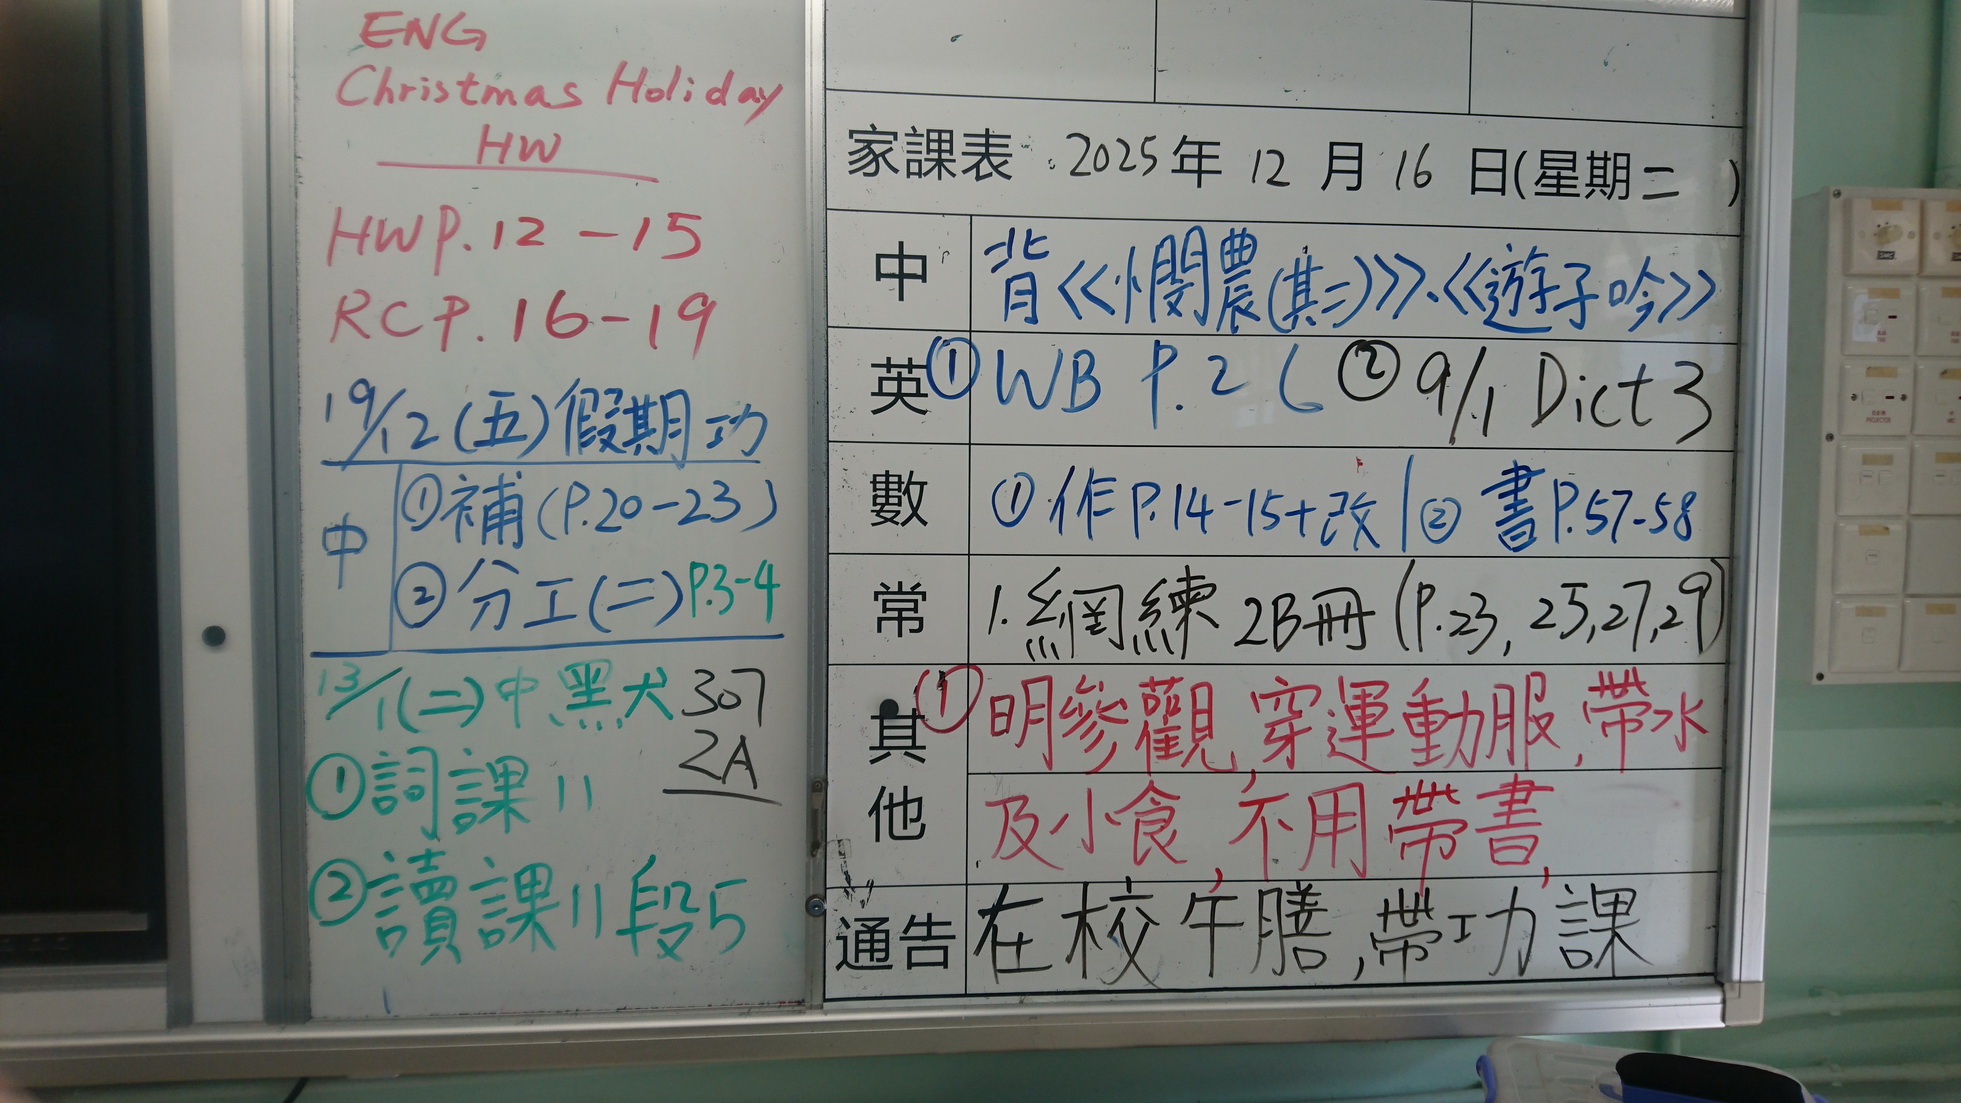 ENG
Christmas Holiday
HW
HW P. 12 - 15
RC P. 16 - 19
19/12 (五) 假期功
中 ① 補 (P.20-23)
② 分工(二) P.3-4
13/1 (二) 中、黑犬 307
2A
① 詞課 11
② 讀課 11 段5
家課表 2025年 12 月 16 日(星期二 )
中 背<<憫農(其二)>>、<<遊子吟>>
英 ① WB P.26 ② 9/1 Dict 3
數 ① 作 P.14-15+改 | ② 書 P.57-58
常 1. 網練 2B冊 (P.23, 25,27,29)
其他 ① 明參觀,穿運動服,帶水
及小食,不用帶書,
通告 在校午膳,帶功課